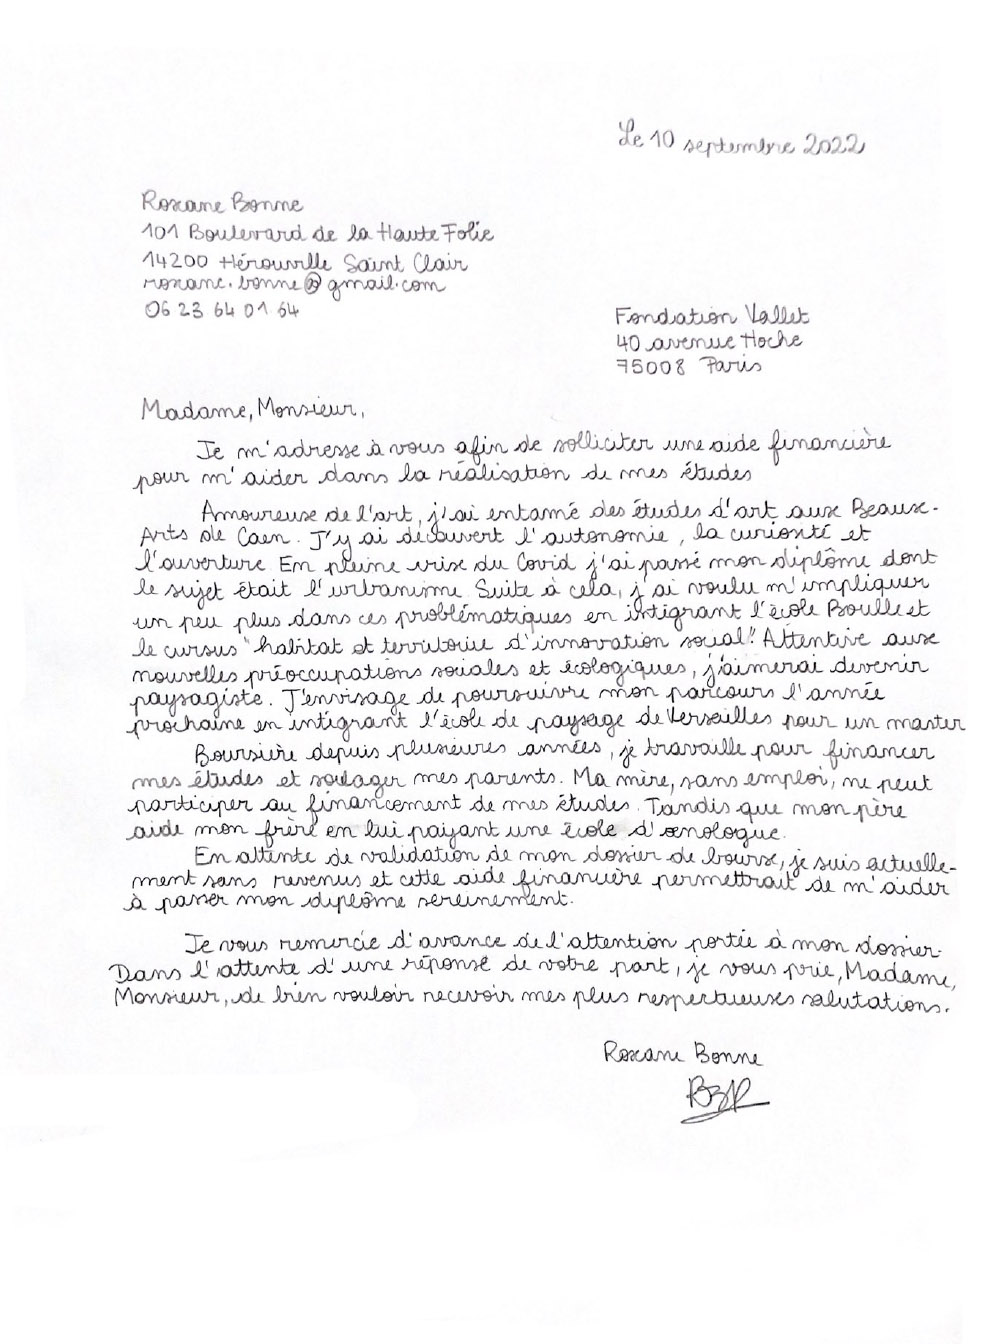 Le 10 septembre 2022
Roxane Bonne
101 Boulevard de la Haute Folie
14200 Hérouville Saint Clair
roxane.bonne@gmail.com
06 23 64 01 64
Fondation Vallet
40 avenue Hoche
75008 Paris
Madame, Monsieur,
Je m'adresse à vous afin de solliciter une aide financière
pour m'aider dans la réalisation de mes études
Amoureuse de l'art, j'ai entamé des études d'art aux Beaux-
Arts de Caen. J'y ai découvert l'autonomie, la curiosité et
l'ouverture. En pleine crise du Covid j'ai passé mon diplôme dont
le sujet était l'urbanisme. Suite à cela, j'ai voulu m'impliquer
un peu plus dans ces problématiques en intégrant l'école Boulle et
le cursus "habitat et territoire d'innovation social". Attentive aux
nouvelles préoccupations sociales et écologiques, j'aimerai devenir
paysagiste. J'envisage de poursuivre mon parcours l'année
prochaine en intégrant l'école de paysage de Versailles pour un master
Boursière depuis plusieures années, je travaille pour financer
mes études et soulager mes parents. Ma mère, sans emploi, ne peut
participer au financement de mes études. Tandis que mon père
aide mon frère en lui payant une école d'œnologue.
En attente de validation de mon dossier de bourse, je suis actuelle-
ment sans revenus et cette aide financière permettrait de m'aider
à passer mon diplôme sereinement.
Je vous remercie d'avance de l'attention portée à mon dossier.
Dans l'attente d'une réponse de votre part, je vous prie, Madame,
Monsieur, de bien vouloir recevoir mes plus respectueuses salutations.
Roxane Bonne